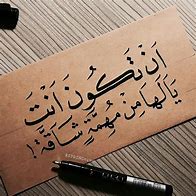 أَنْ تَكُونَ أَنْتَ
يَا لَهَا مِنْ مُهِمَّةٍ شَاقَّةٍ !